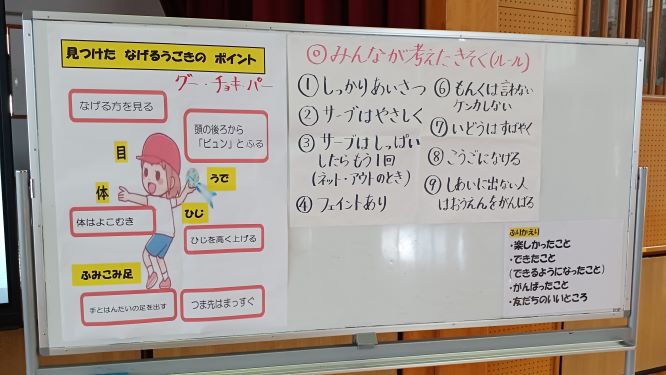 見つけた なげるうごきの ポイント
グー・チョキ・パー
なげる方を見る
頭の後ろから
「ビュン」とふる
目
うで
体
ひじ
体はよこむき
ひじを高く上げる
ふみこみ足
手とはんたいの足を出す
つま先はまっすぐ
◎みんなが考えたきそく(ルール)
①しっかりあいさつ
②サーブはやさしく
③サーブはしっぱい
したらもう1回
(ネット・アウトのとき)
④フェイントあり
⑥もんくは言わない
ケンカしない
⑦いどうはすばやく
⑧こうごになげる
⑨しあいに出ない人
はおうえんをがんばる
ふりかえり
・楽しかったこと
・できたこと
(できるようになったこと)
・がんばったこと
・友だちのいいところ